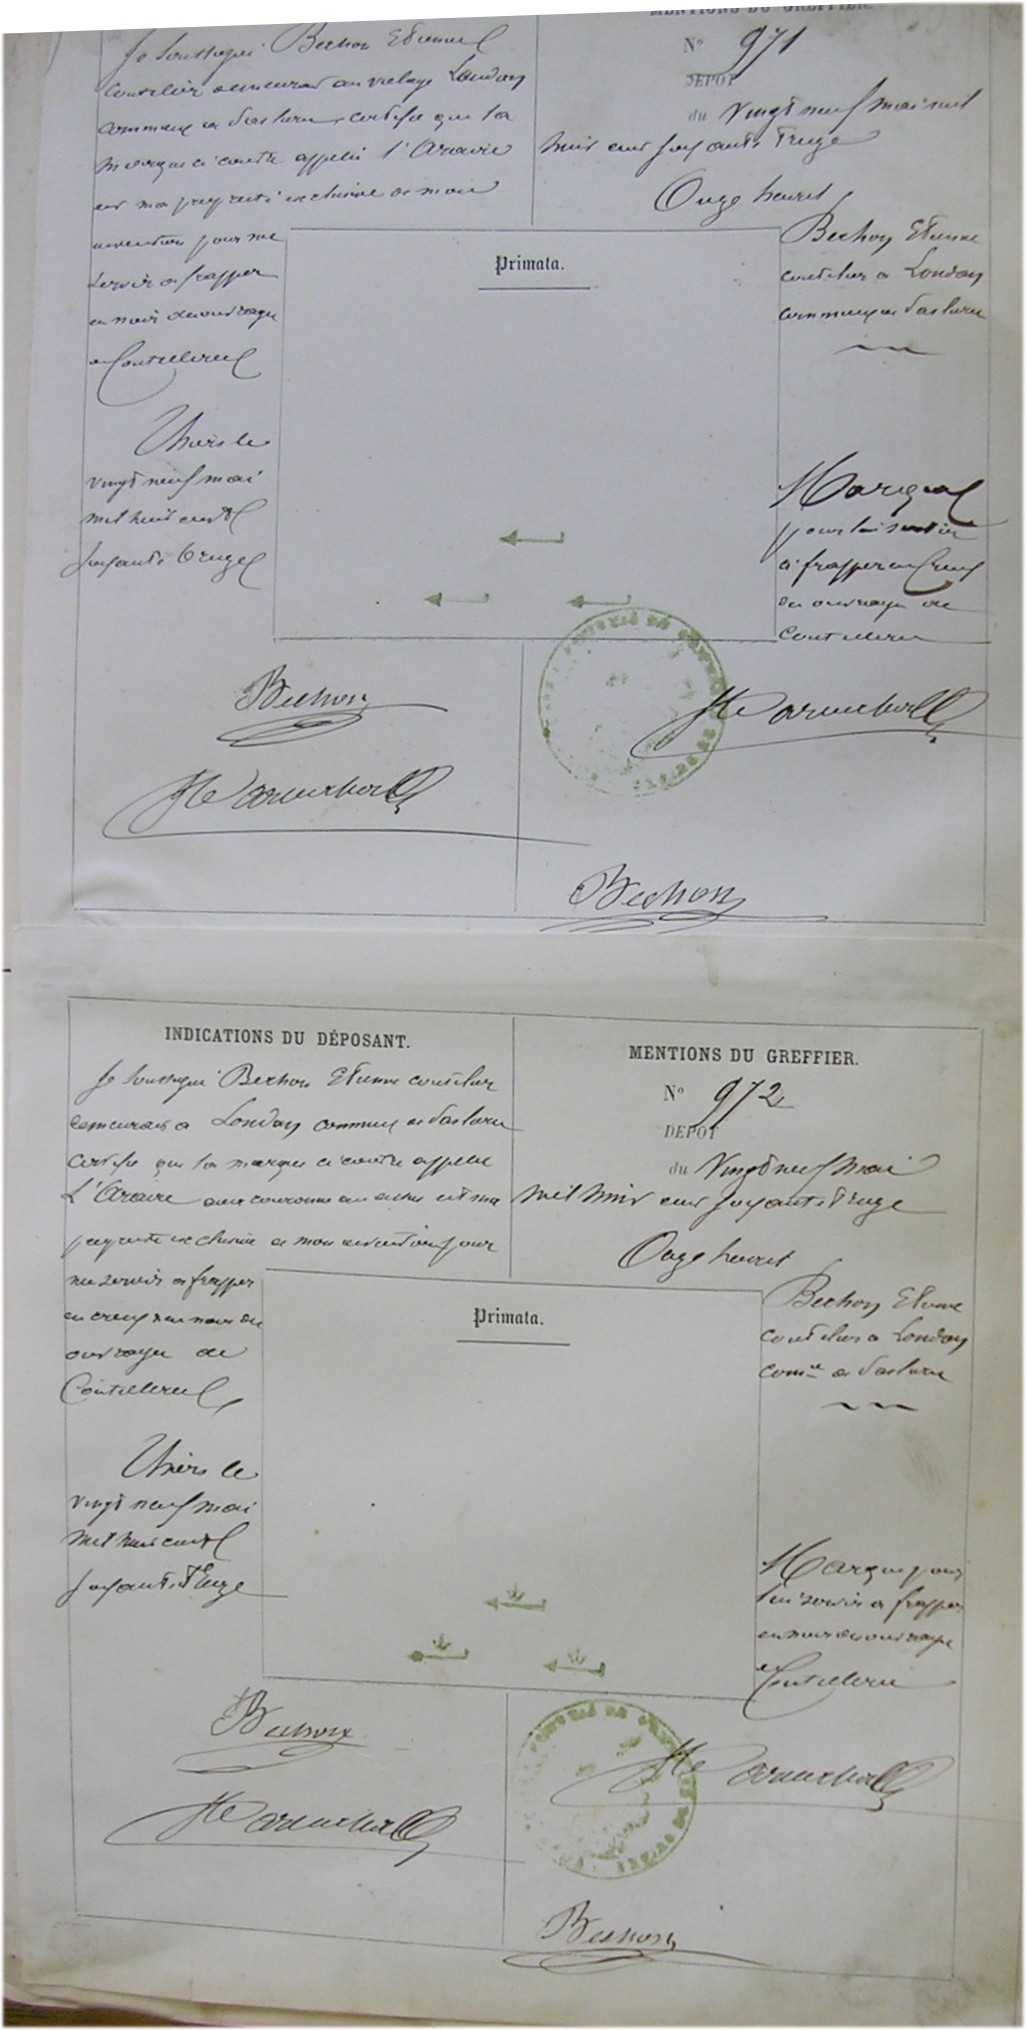 Je soussigné Bechon Etienne
coutelier demeurant au village Londay
commune de certifie que la
marque ci contre appelée l'Araire
est ma propriété exclusive de mon
invention pour me
servir a frapper
en noir ouvrages
Coutellerie
Thiers le
vingt neuf mai
mil huit cent
soixante treize
MENTIONS DU GREFFIER.
N° 971
DÉPOT
du Vingt neuf mai mil
huit cent soixante treize
Onze heures
Bechon Etienne
coutelier a Londay
commune de
Primata.
Marque
pour lui servir
a frapper en creux
des ouvrages de
coutellerie
Bechon
Bechon
INDICATIONS DU DÉPOSANT.
Je soussigné Bechon Etienne coutelier
demeurant a Londay commune de
certifie que la marque ci contre appelée
L'Araire avec couronne au dessus est ma
propriété exclusive de mon invention pour
me servir a frapper
en creux en noir des
ouvrages de
Coutellerie
Thiers le
vingt neuf mai
mil huit cent
soixante treize
MENTIONS DU GREFFIER.
N° 972
DÉPOT
du Vingt neuf mai
mil huit cent soixante treize
Onze heures
Bechon Etienne
coutelier a Londay
comne de
Primata.
Marque pour
lui servir a frapper
en noir des ouvrages
de
Coutellerie
Bechon
Bechon